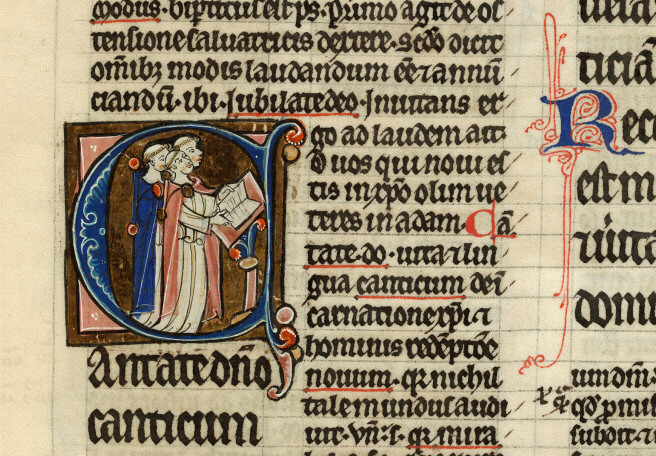 modus. bip̄titus est ps. Primo agit de os
tensione saluatricis dextere. Scd̄o dicit
om̄ibꝫ modis laudandum eē ⁊ annū
ciandū. ibi. Jubilate deo. Jnuitans er
go ad laudem ait
d̄ uos qui noui es
tis in xp̄o olim ue
teres in adam. Cā
tate. do. uita ⁊ lin
gua canticum de ī
carnatione xp̄i ⁊
hominis redēptōe
nouum. qꝛ nichil
tale mundus audi
uit. vn̄. s. qꝛ mira
Antate dn̄o
canticum
ticiā
Rec
est m
domi
um dm̄
qd̄ p̄mis